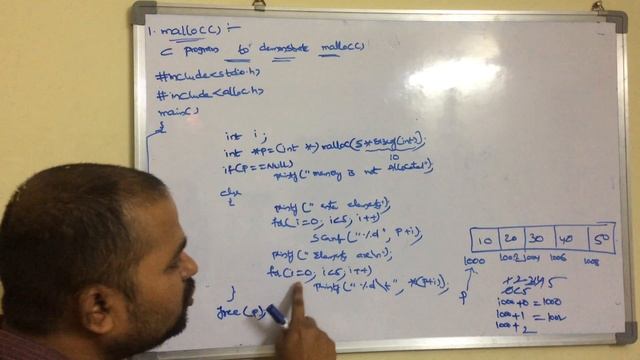 1. malloc() :-
C program to demonstrate malloc()
#include<stdio.h>
#include<alloc.h>
main()
{
int i;
int *p=(int *)malloc(5*sizeof(int));
10
if(p==NULL)
printf("memory is not allocated");
else
{
printf("enter elements");
for(i=0; i<5; i++)
scanf("%d", p+i);
printf("Elements are\n");
for(i=0; i<5; i++)
printf("%d\t", *(p+i));
}
free(p);
10 20 30 40 50
1000 1002 1004 1006 1008
p
1000+0=1000
1000+1=1002
1000+2